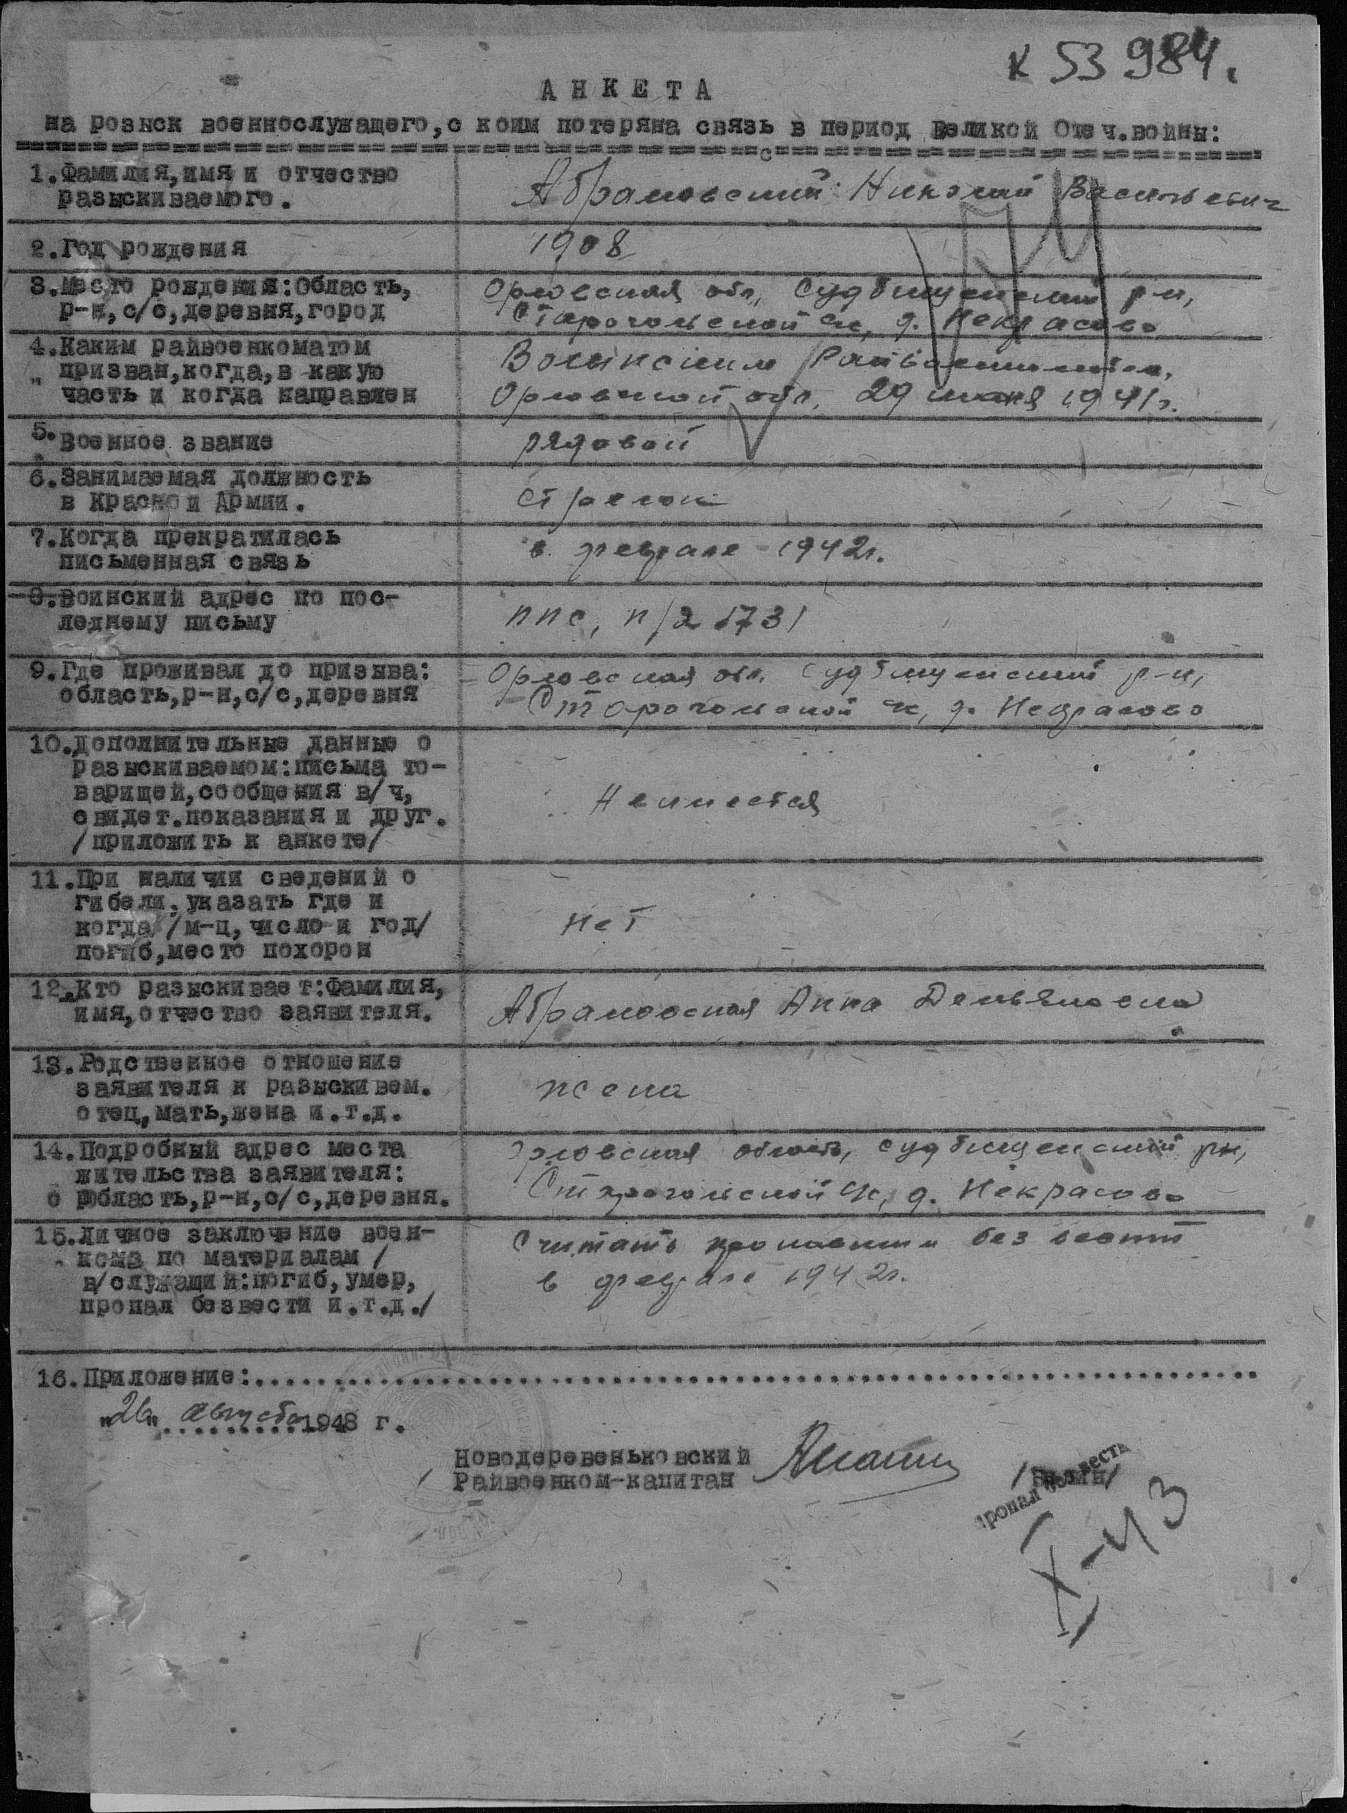 к 53984.
АНКЕТА
на розыск военнослужащего, с коим потеряна связь в период Великой Отеч.войны:
1.Фамилия,имя и отчество
разыскиваемого.
Абрамовский Николай Васильевич
2.Год рождения
1908
3.Место рождения:Область,
р-н,с/с,деревня,город
Орловская обл, Судбищенский р-н,
Старогольской с/с, д. Некрасово
4.Каким райвоенкоматом
призван,когда,в какую
часть и когда направлен
Райвоенкоматом,
Орловской обл. 29 1941г.
5.Военное звание
рядовой
6.Занимаемая должность
в Красной Армии.
стрелок
7.Когда прекратилась
письменная связь
в феврале 1942г.
8.Воинский адрес по пос-
леднему письму
ппс, п/я 1731
9.Где проживал до призыва:
область,р-н,с/с,деревня
Орловская обл. Судбищенский р-н,
Старогольской с/с, д. Некрасово
10.Дополнительные данные о
разыскиваемом:письма то-
варищей,сообщения в/ч,
свидет.показания и друг.
/приложить к анкете/
Не имеется
11.При наличии сведений о
гибели.указать где и
когда /м-ц,число и год/
погиб,место похорон
нет
12.Кто разыскивает:Фамилия,
имя,отчество заявителя.
Абрамовская Анна Демьяновна
13.Родственное отношение
заявителя к разыскивем.
отец,мать,жена и.т.д.
жена
14.Подробный адрес места
жительства заявителя:
область,р-н,с/с,деревня.
Орловская область, Судбищенский рн,
Старогольской с/с, д. Некрасово
15.Личное заключение воен-
кома по материалам /
в/служащий:погиб,умер,
пропал безвести и.т.д./
Считать пропавшим без вести
в феврале 1942г.
16.Приложение:
"26" августа 1948 г.
Новодеревеньковский
Райвоенком-капитан
пропал без вести
X-43